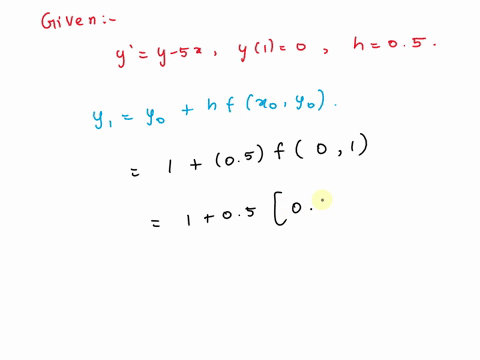 Given:-
y' = y-5x, y(1)=0, h=0.5.
y₁ = y₀ + h f(x₀, y₀).
= 1 + (0.5) f(0,1)
= 1 + 0.5 [0.